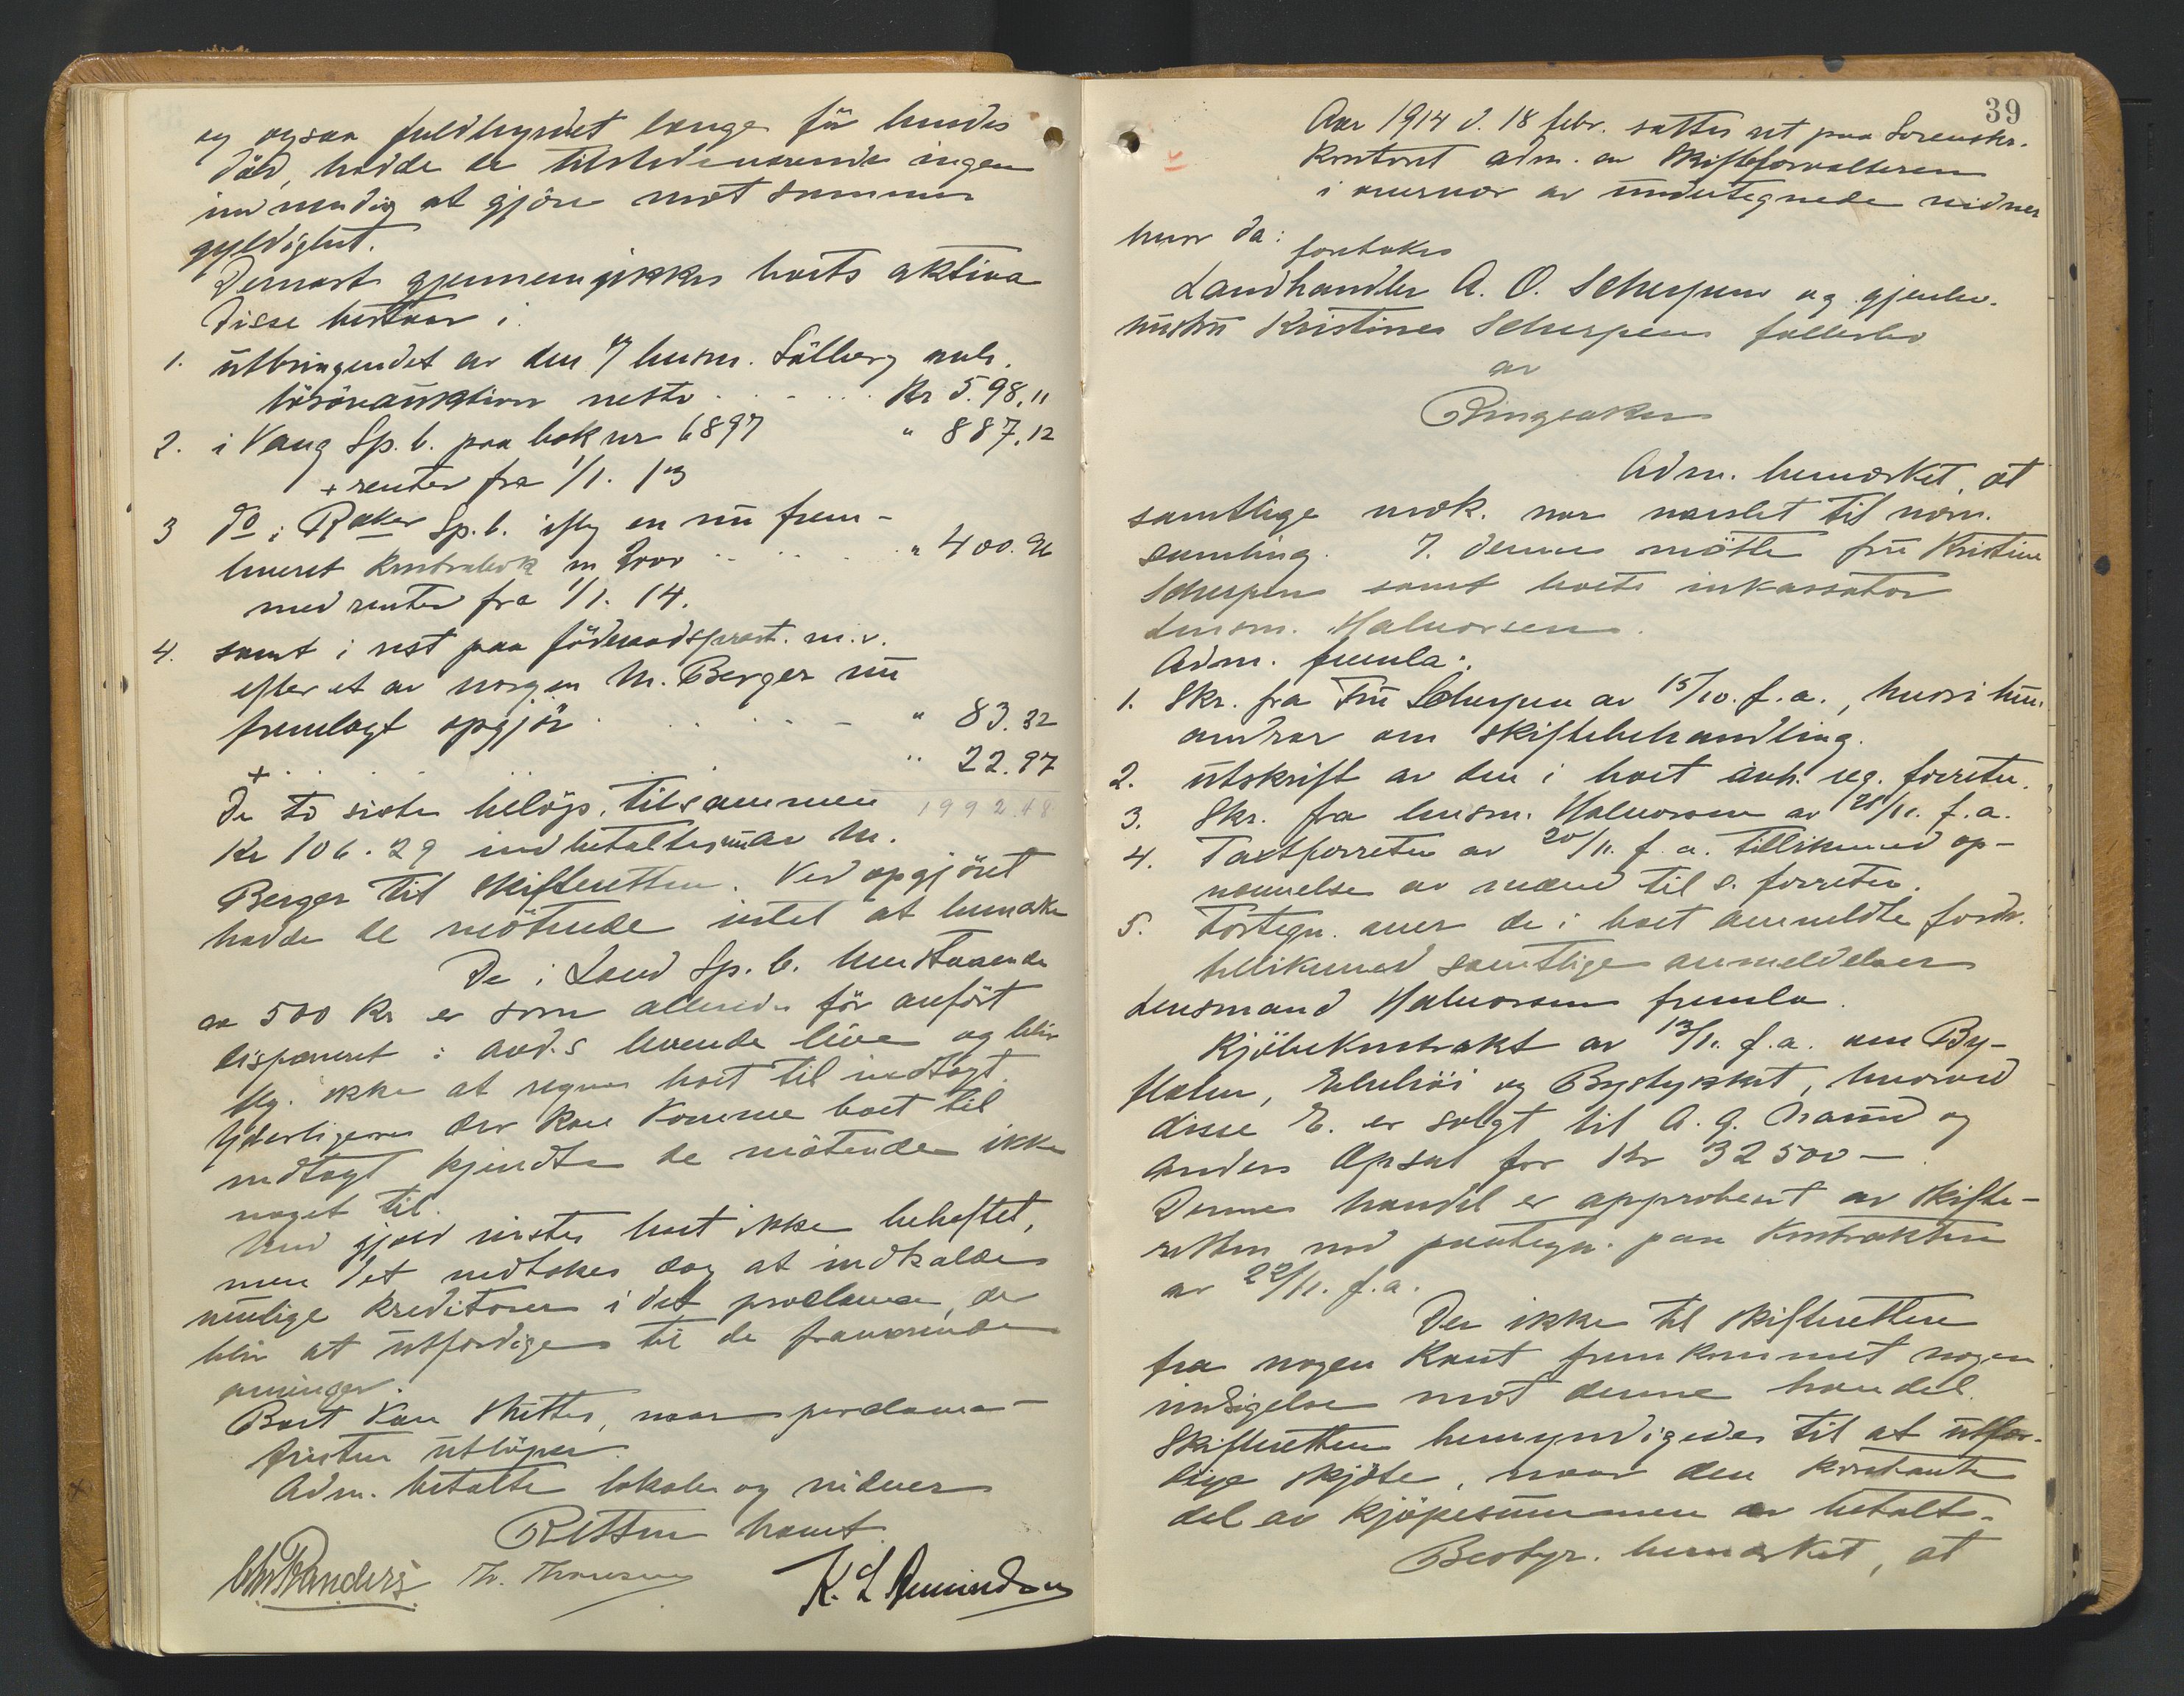 og ogsaa fuldbyrdet længe för hendes
död, hadde de tilstedeværende ingen
indvending at gjöre mot sammes
gyldighet.
Dernæst gjennemgikkes boets aktiva
Disse bestaar i
1. utbringendet av den ved lensm. Sölberg avh.
lösöreauktion netto Kr 598,11
2. i Vang Sp.b. paa bok nr 6897 " 887,12
+ renter fra 1/1. 13
3 do i Romedal Sp.b. iflg en nu frem-
leveret kontrabok nr " 400.96
med renter fra 1/1. 14.
4. samt i rest paa föderaadspræst. m.v.
efter et av M. Berger nu
fremlagt opgjör " 83.32
+ " 22.97
1992.48
De to siste belöp, tilsammen
Kr 106.29 indbetaltes nu av M.
Berger til skifteretten. Ved opgjöret
hadde de mötende intet at bemærke
De i Land Sp.b. henstaaende
500 Kr er som allerede för anfört
disponeret i avd.s levende live og blir
flg. ikke at regne boet til indtægt.
Yderligere der kan komme boet til
indtægt kjendte de mötende ikke
noget til.
Med gjæld vistes boet ikke beheftet,
men det vedtokes dog at indkalde
mulige kreditorer i det proclama, der
blir at utfærdige til de fraværende
arvinger.
Boet kan sluttes, naar proclama-
fristen utlöper.
Adm. betalte lokale og vidner
Retten hævet
Chr Randers Th. Thoresen K. L. Amundsen
39
Aar 1914 d. 18 febr. sattes ret paa Sorenskr.
kontoret adm. av Skifteforvalteren
i overvær av undertegnede vidner
hvor da:
foretokes
Landhandler A. O. Scherpen og gjenlev.
hustru Kristines Scherpens fællesbo
av
Ringsaker
Adm. bemærket, at
samtlige vedk. var varslet til nærv.
samling. I denne mötte fru Kristine
Scherpen samt boets inkassator
Lensm. Halvorsen.
Adm. fremla:
1. Skr. fra Fru Scherpen av 15/10. f.a., hvori hun
andrar om skiftebehandling.
2. Utskrift av den i boet avh. reg. forretn.
3. Skr. fra lensm. Halvorsen av 28/11. f.a.
4. Taxtforretn av 20/11. f.a. tillikemed op-
nævnelse av mænd til s. forretn.
5. Fortegn. over de i boet anmeldte fordr.
tillikemed samtlige anmeldelser
Lensmand Halvorsen fremla.
Kjöbekontrakt av 13/11. f.a. om By-
flaten, og Bystykket, hvorved
disse E. er solgt til A. G. og
Anders Opsal for Kr 32500 —
Denne handel er approbert av Skifte-
retten ved paategn. paa kontrakten
av 22/11. f.a.
Der ikke til skifteretten
fra nogen kant fremkommet nogen
indsigelse mot denne handel.
Skifteretten bemyndigedes til at utfær-
dige skjöte, naar den kontante
del av kjöpesummen er betalt.
Bestyr. bemærket, at